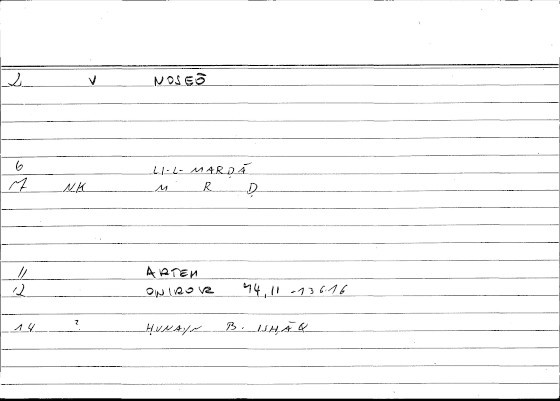 2 V NOSEŌ
6 LI-L-MARḌĀ
7 NK M R Ḍ
11 ARTEM
12 ONIROCR 44,11 -136.16
14 ? ḤUNAYN B. ISḤĀQ